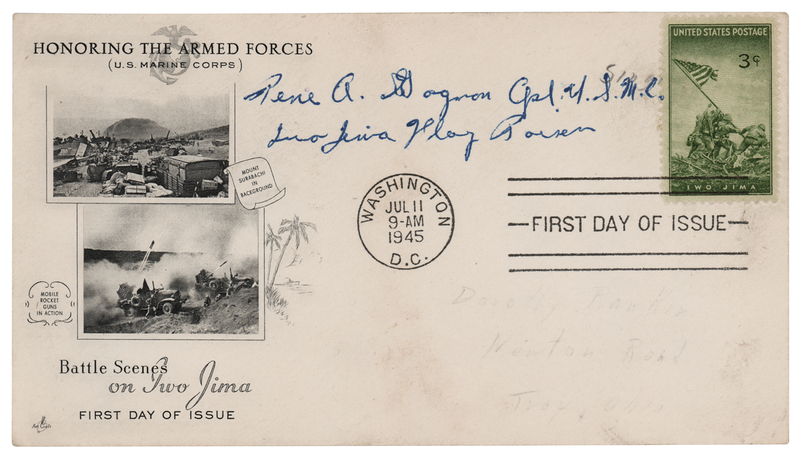 HONORING THE ARMED FORCES
(U.S. MARINE CORPS)
UNITED STATES POSTAGE
3¢
IWO JIMA
Rene A. Gagnon Cpl. U.S.M.C.
Iwo Jima Flag Raiser
MOUNT
SURABACHI
IN
BACKGROUND
WASHINGTON
JUL 11
9-AM
1945
D.C.
FIRST DAY OF ISSUE
MOBILE
ROCKET
GUNS
IN ACTION
Battle Scenes
on Iwo Jima
FIRST DAY OF ISSUE
Art Craft
Newton Road